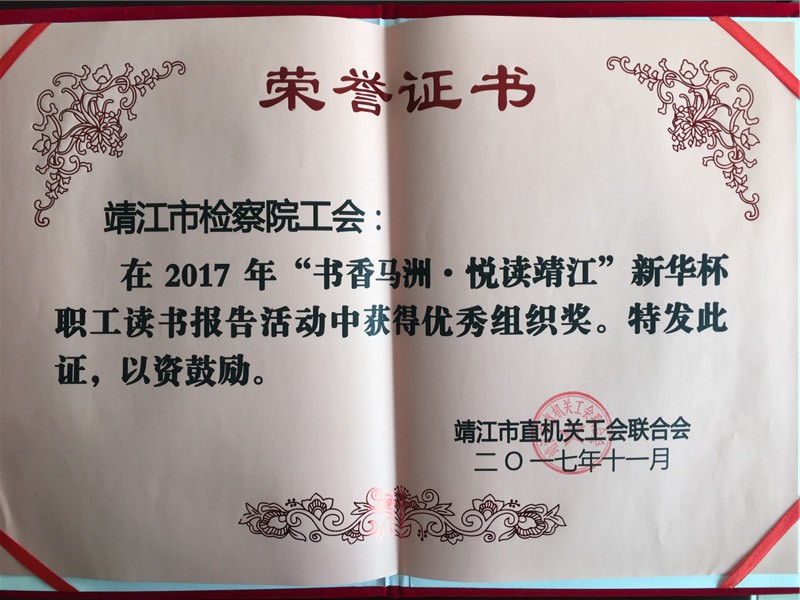 荣誉证书
靖江市检察院工会：
在 2017 年“书香马洲·悦读靖江”新华杯
职工读书报告活动中获得优秀组织奖。特发此
证，以资鼓励。
靖江市直机关工会联合会
二〇一七年十一月